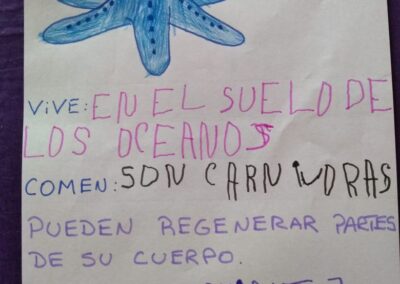 VIVE: EN EL SUELO DE
LOS OCEANOS
COMEN: SON CARNIVORAS
PUEDEN REGENERAR PARTES
DE SU CUERPO.